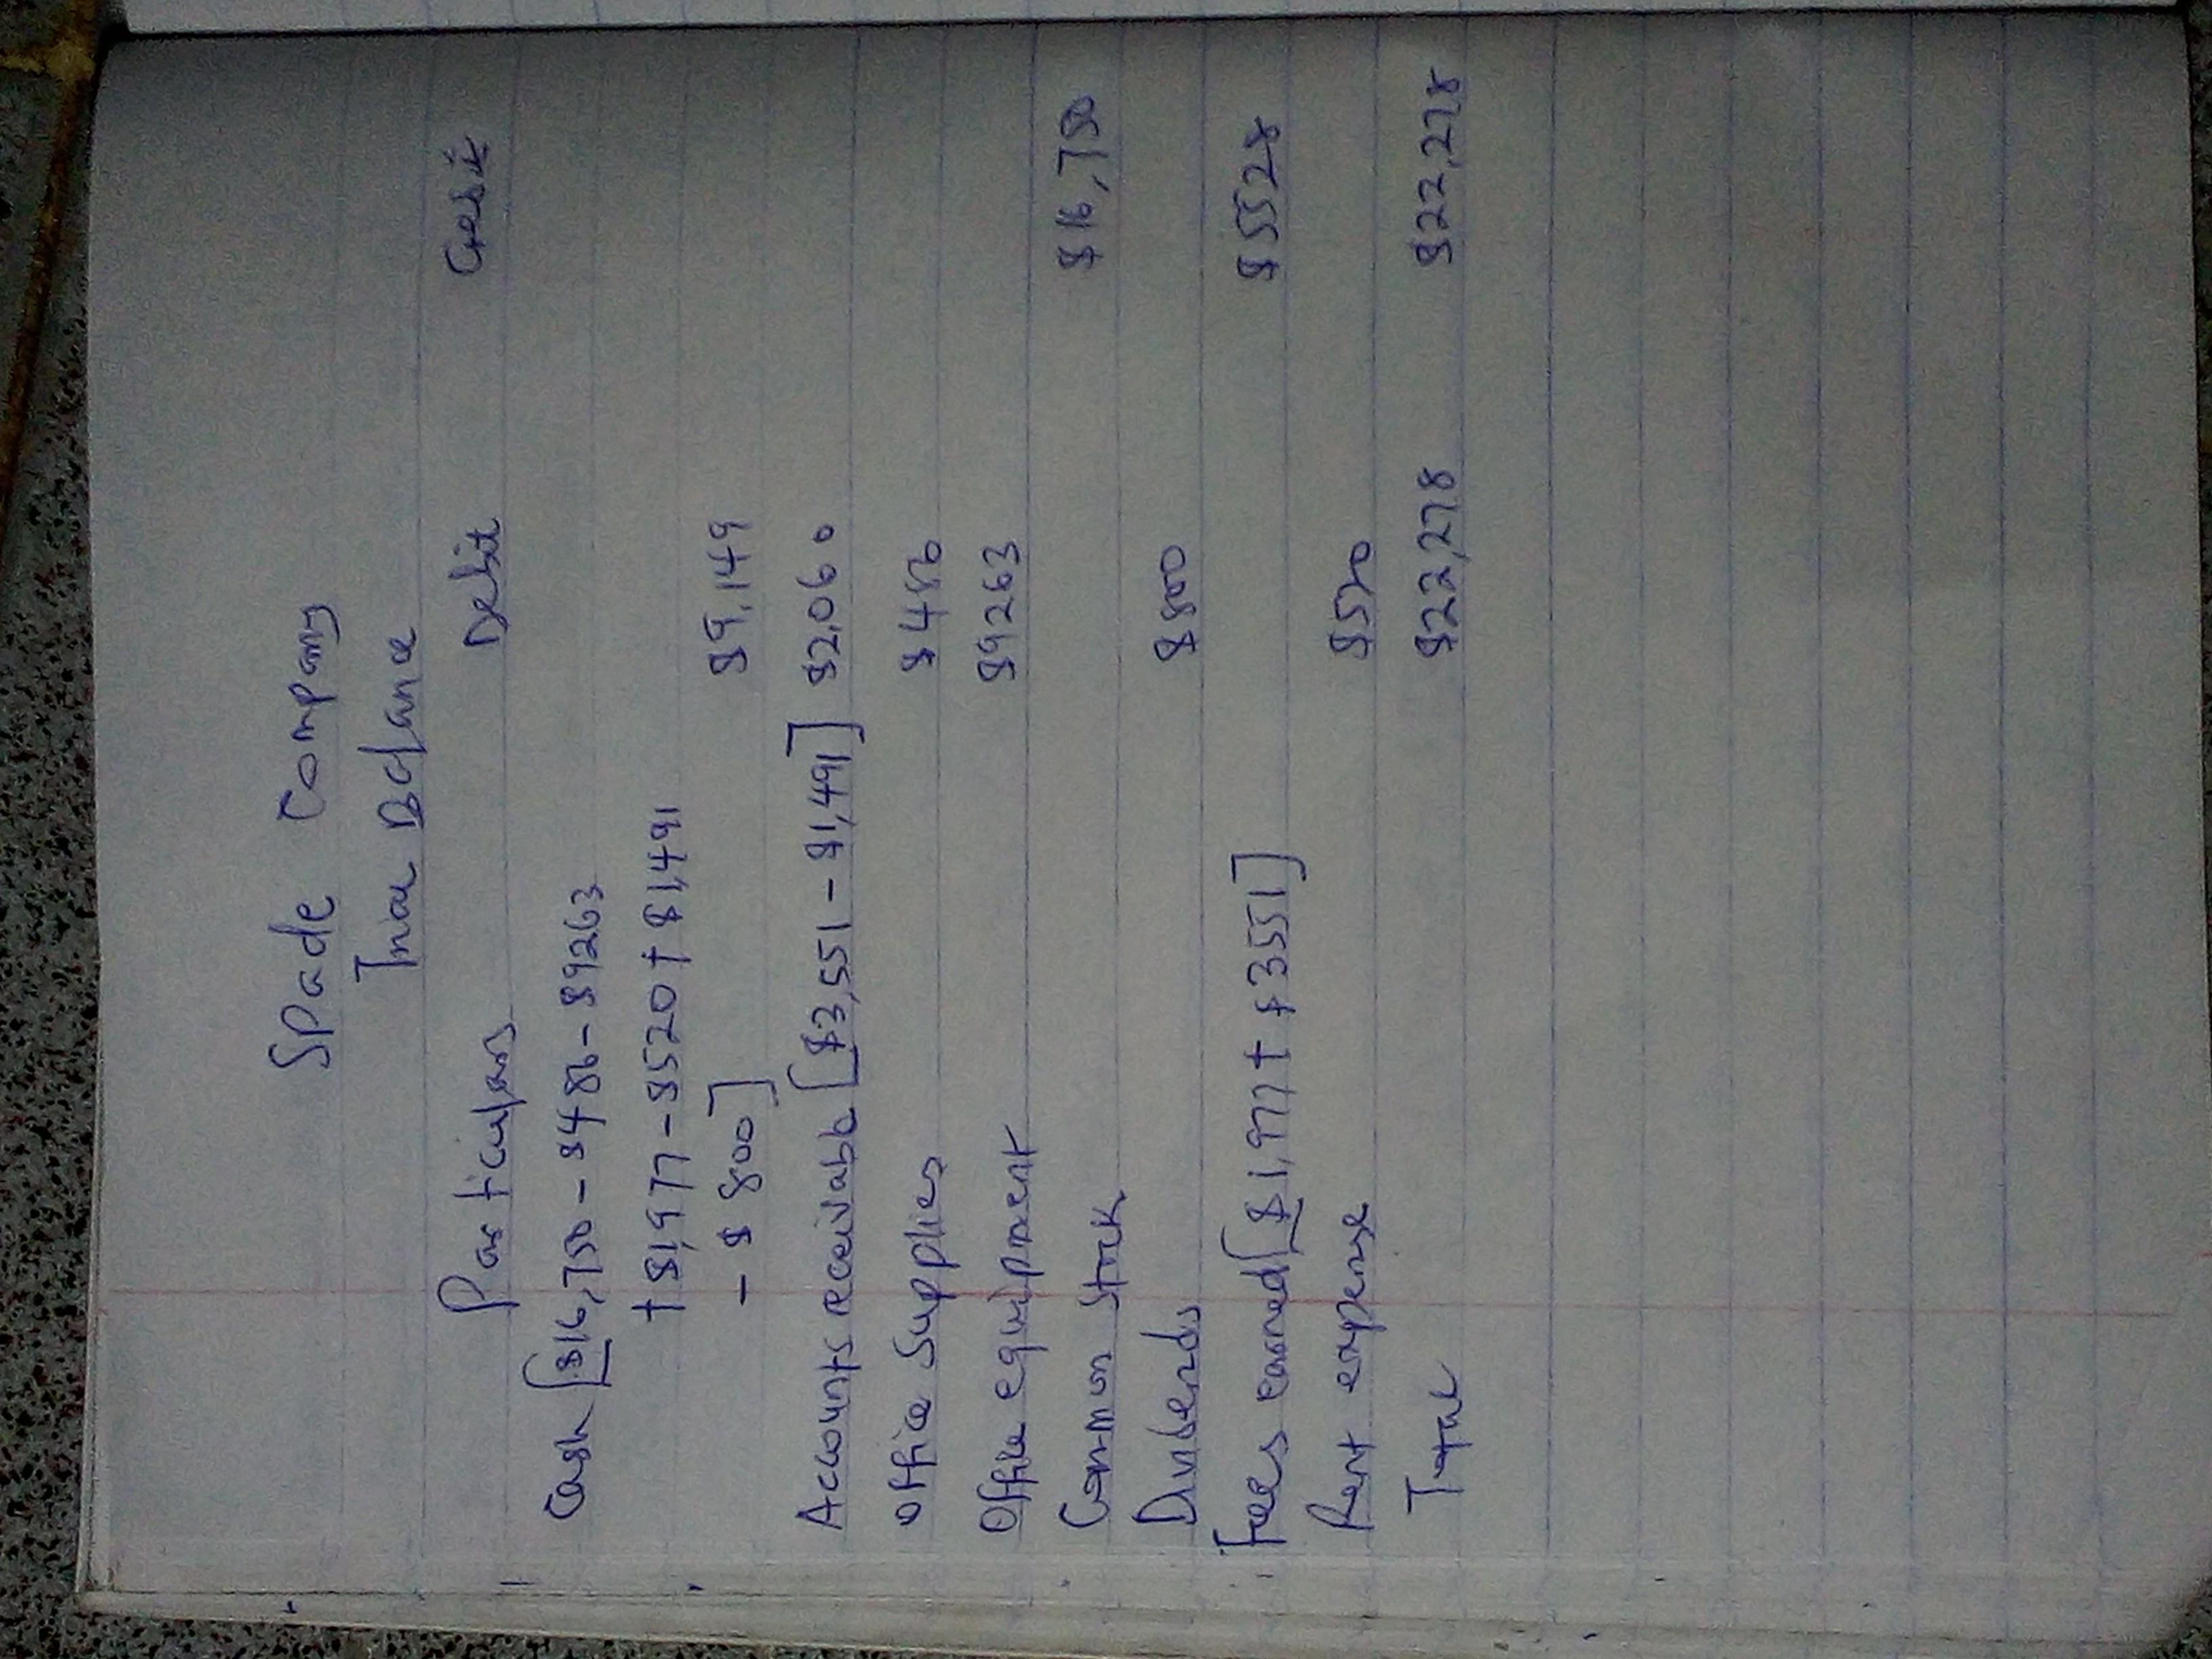 Spade Company
Trial Balance
Particulars Debit Credit
Cash [$16,750 - $486 - $9263
+ $1,977 - $520 + $1,491
- $800] $9,149
Accounts receivable [$3,551 - $1,491] $2,060
Office Supplies $486
Office equipment $9263
Common stock $16,750
Dividends $800
Fees earned [$1,977 + $3551] $5528
Rent expense $520
Total $22,278 $22,278